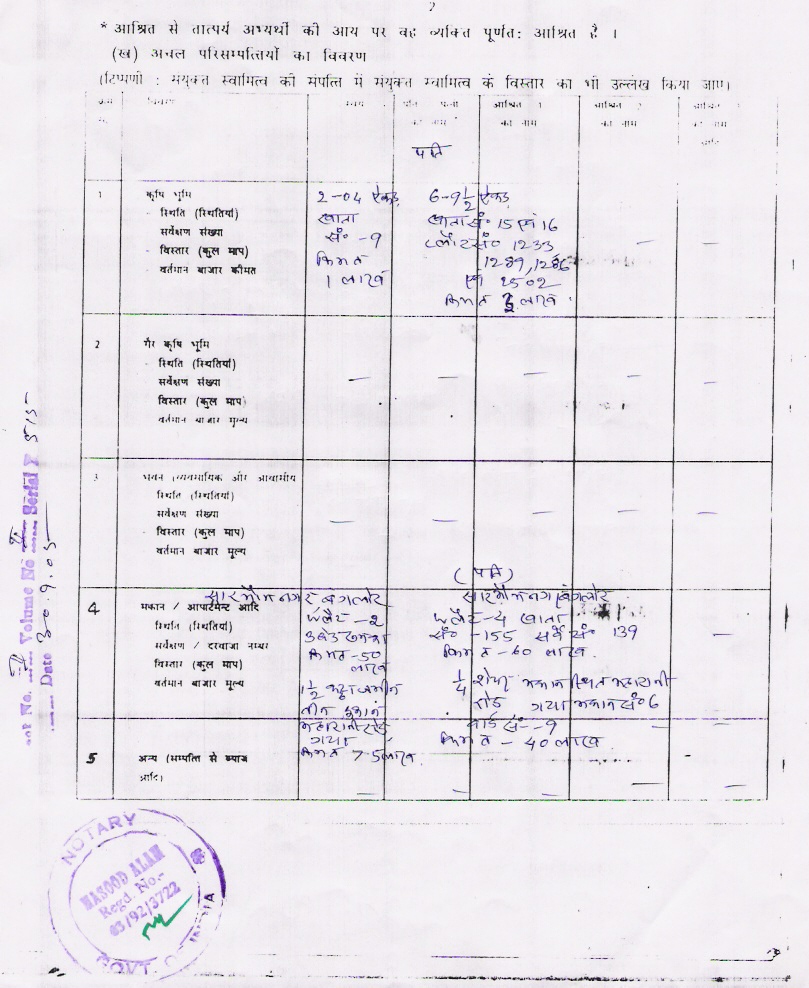 2
* आश्रित से तात्पर्य अभ्यर्थी की आय पर वह व्यक्ति पूर्णत: आश्रित है ।
(ख) अचल परिसम्पत्तियों का विवरण
(टिप्पणी : संयुक्त स्वामित्व की संपत्ति में संयुक्त स्वामित्व के विस्तार का भी उल्लेख किया जाए)
क्रम सं. विवरण स्वयं पति पत्नी का नाम आश्रित 1 का नाम आश्रित 2 का नाम आश्रित 3 का नाम
पति
1 कृषि भूमि
- स्थिति (स्थितियां)
सर्वेक्षण संख्या
- विस्तार (कुल माप)
वर्तमान बाजार कीमत
2-04 ऐकड़
खाता
सं० -9
किमत
1 लाख
6-9 1/2 ऐकड़
खाता सं० 15 एवं 16
प्लौट सं० 1233
1289, 1286
एवं 2502
किमत लाख
— —
2 गैर कृषि भूमि
- स्थिति (स्थितियां)
सर्वेक्षण संख्या
विस्तार (कुल माप)
वर्तमान बाजार मूल्य
— — — — —
3 भवन (व्यवसायिक और आवासीय
स्थिति (स्थितियां)
सर्वेक्षण संख्या
- विस्तार (कुल माप)
वर्तमान बाजार मूल्य
— — — — —
4 मकान / आपार्टमेन्ट आदि
स्थिति (स्थितियां)
सर्वेक्षण / दरवाजा नम्बर
विस्तार (कुल माप)
वर्तमान बाजार मूल्य
नगर बंगलोर
फ्लैट -2
किमत -50
लाख
1 1/2 कट्ठा जमीन
तीन दुकान
महारानी रोड
गया
किमत 75 लाख
(पति)
नगर बंगलोर
फ्लैट -4 खाता
सं० -155 सर्वे सं० 139
किमत -60 लाख
1/4 शेयर मकान स्थित महारानी
रोड गया मकान सं० 6
वार्ड सं० -9
किमत - 40 लाख
5 अन्य (सम्पत्ति से ब्याज
आदि)
— — — — —
Volume No
Serial 515
Date 30.9.05
NOTARY
MASOOD ALAM
Regd. No.-
03/92/3722
GOVT. OF INDIA